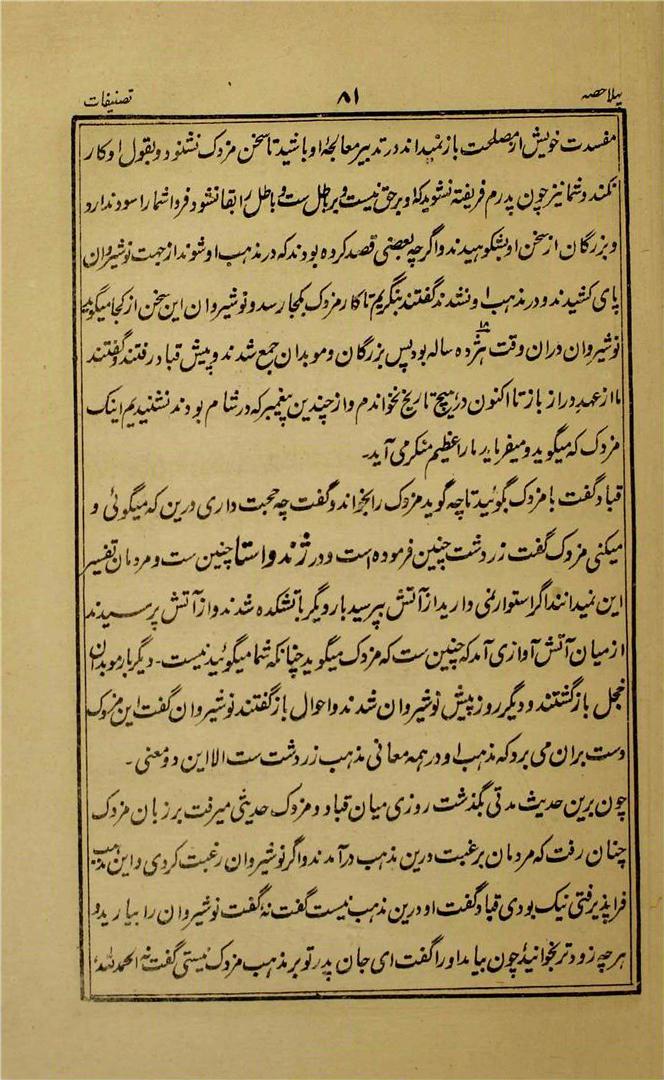 پہلا حصہ ۸۱ تصنیفات
مفسدت خویش از مصلحت باز نمیداند در تدبیر معالجۂ او باشید تا سخن مزدک نشنود و بقول او کار
نکند و شما نیز چون پدرم فریفتہ نشوید کہ او بر حق نیست و بر باطل ست و باطل را بقا نشود فردا شما را سود ندارد
و بزرگان از سخن او بشکوہیدند و اگرچہ بعضی قصد کردہ بودند کہ در مذہب او شوند از جہت نوشیروان
پای کشیدند و در مذہب او نشدند گفتند بنگریم تا کار مزدک بکجا رسد و نوشیروان این سخن از کجا میگوید
نوشیروان دران وقت ہژدہ ۱۸ سالہ بود پس بزرگان و موبدان جمع شدند و پیش قباد رفتند و گفتند
ما از عہد دراز باز تا اکنون در ہیچ تاریخ نخواندم و از چندین پیغمبر کہ در شام بودند نشنیدیم اینک
مزدک کہ میگوید و میفرماید ما را عظیم منکر می آید۔
قباد گفت با مزدک بگوئید تا چہ گوید مزدک را بخواند و گفت چہ حجت داری درین کہ میگوئی و
میکنی مزدک گفت زردشت چنین فرمودہ است و در ژند و استا چنین ست و مردمان تفسیر
این نمیدانند اگر استوار نمی دارید از آتش بپرسید بار دیگر باتشکدہ شدند و از آتش پرسیدند
از میان آتش آوازی آمد کہ چنین ست کہ مزدک میگوید چنانکہ شما میگوئید نیست۔ دیگر بار موبدان
خجل باز گشتند و دیگر روز پیش نوشیروان شدند و احوال باز گفتند نوشیروان گفت این مزدک
دست بران می برد کہ مذہب او در ہمہ معانی مذہب زردشت ست الا این دو معنی۔
چون برین حدیث مدتی بگذشت روزی میان قباد و مزدک حدیثی میرفت بر زبان مزدک
چنان رفت کہ مردمان برغبت درین مذہب درآمدند و اگر نوشیروان رغبت کردی و این مذہب
فرا پذیرفتی نیک بودی قباد گفت او درین مذہب نیست گفت نہ گفت نوشیروان را بیارید و
ہرچہ زودتر بخوانید چون بیامد او را گفت ای جان پدر تو بر مذہب مزدک نیستی گفت نہ الحمدللہ